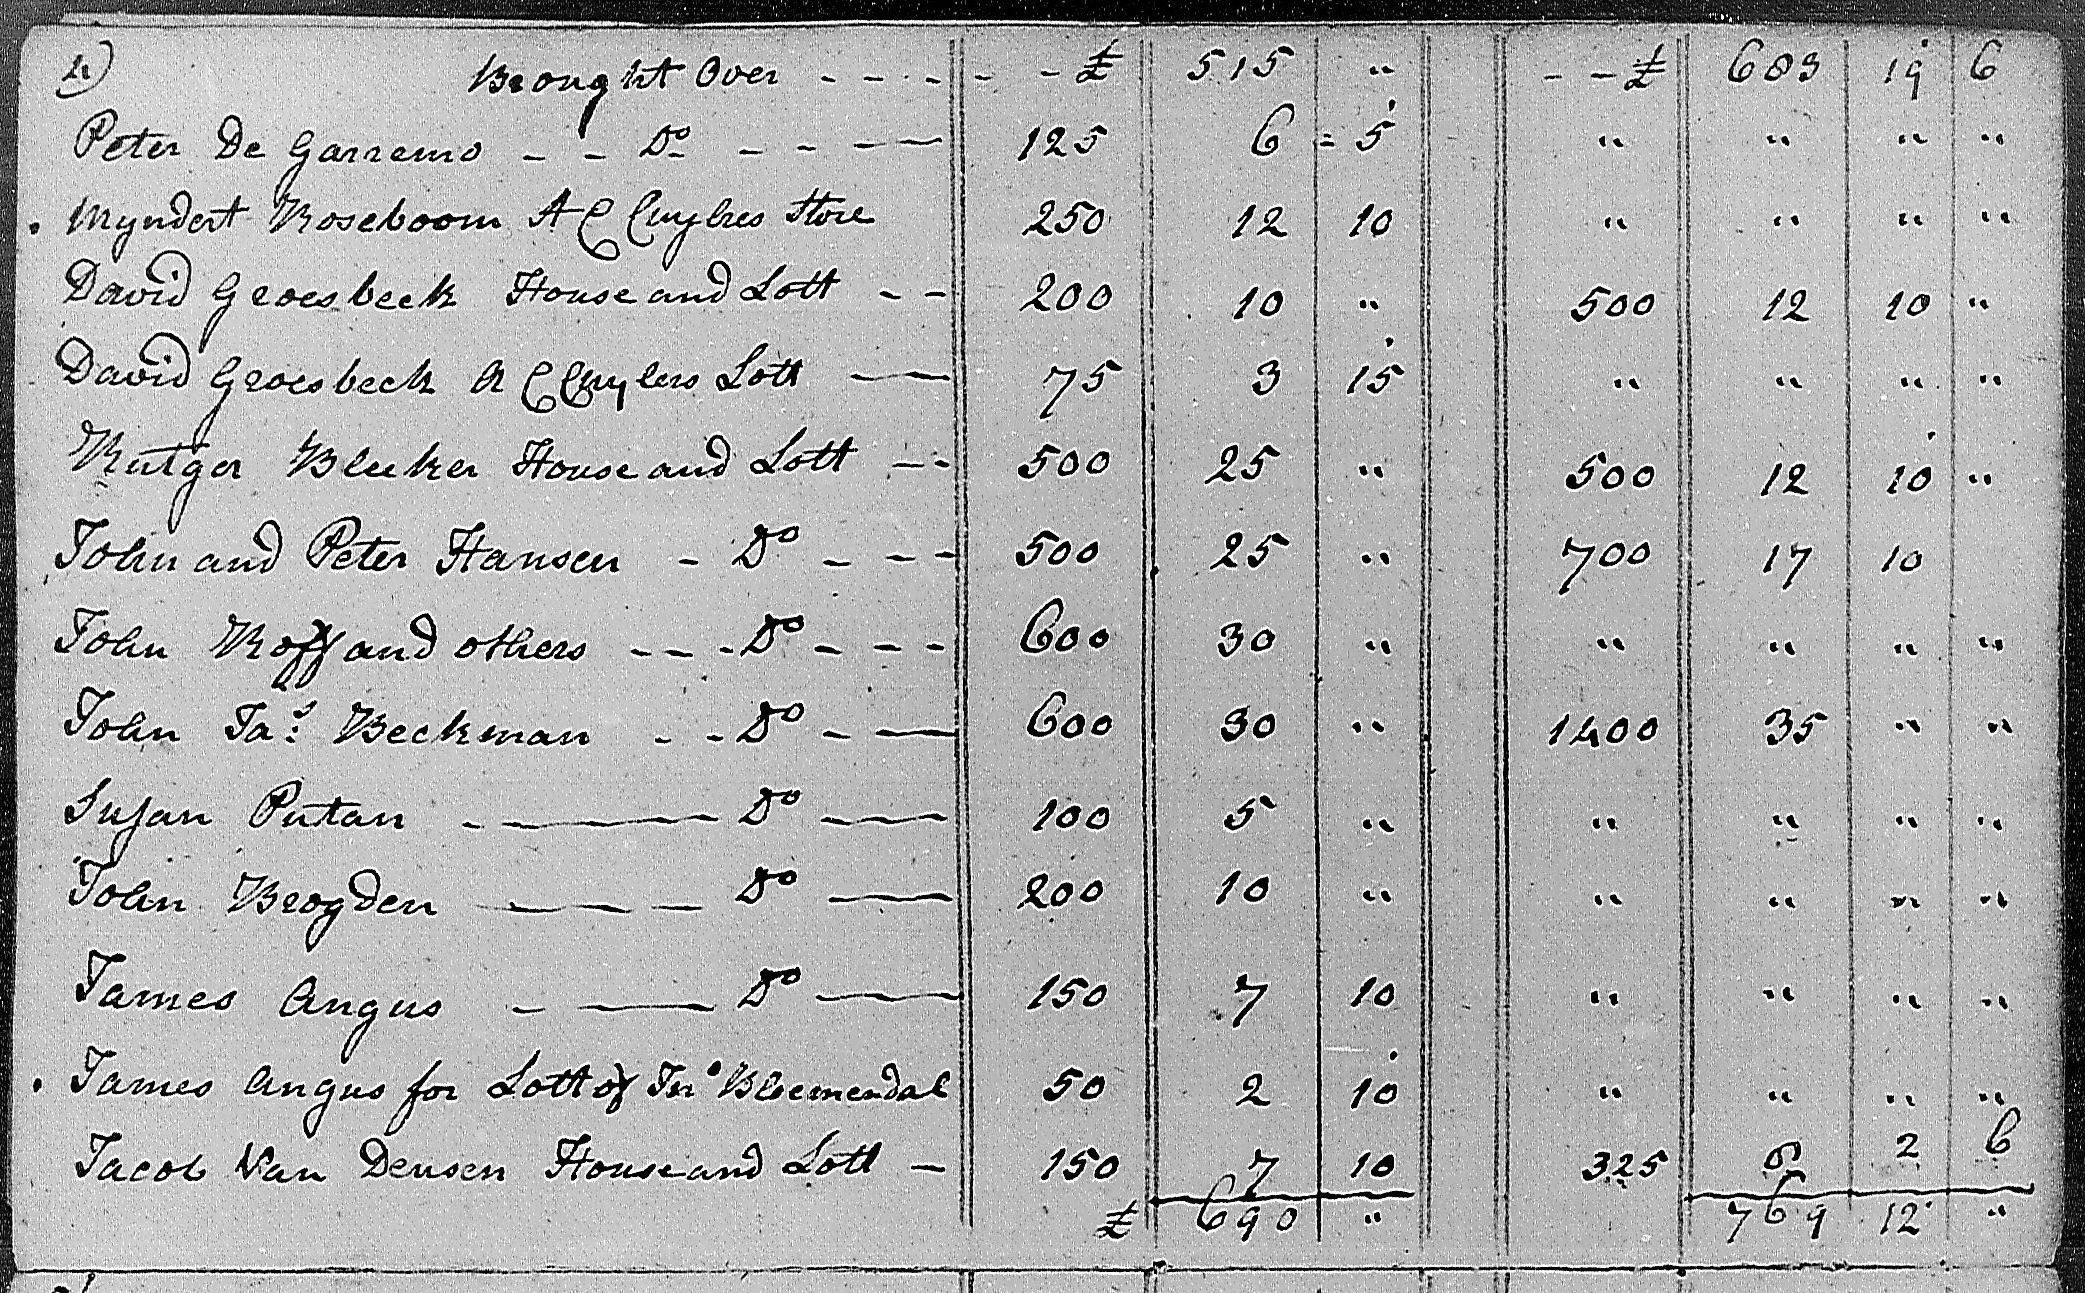 4) Brought Over - - - - - - £ 515 " - - £ 683 19 6
Peter De Garremo - - Do - - - - 125 6 = 5 " " " "
Myndert Roseboom A C Cuylers Store 250 12 10 " " " "
David Groesbeek House and Lott - - 200 10 " 500 12 10 "
David Groesbeek A C Cuylers Lott - 75 3 15 " " " "
Rutger Bleeker House and Lott - - 500 25 " 500 12 10 "
John and Peter Hansen - Do - - - 500 25 " 700 17 10
John Roff and others - - - Do - - - 600 30 " " " " "
John Jas. Beekman - - Do - - 600 30 " 1400 35 " "
Susan Putan - - Do - 100 5 " " " " "
John Brogden - - - Do - 200 10 " " " " "
James Angus - - Do - 150 7 10 " " " "
James Angus for Lott of Jno Bloemendal 50 2 10 " " " "
Jacob Van Deusen House and Lott - 150 7 10 325 8 2 6
£ 690 " 769 12 "